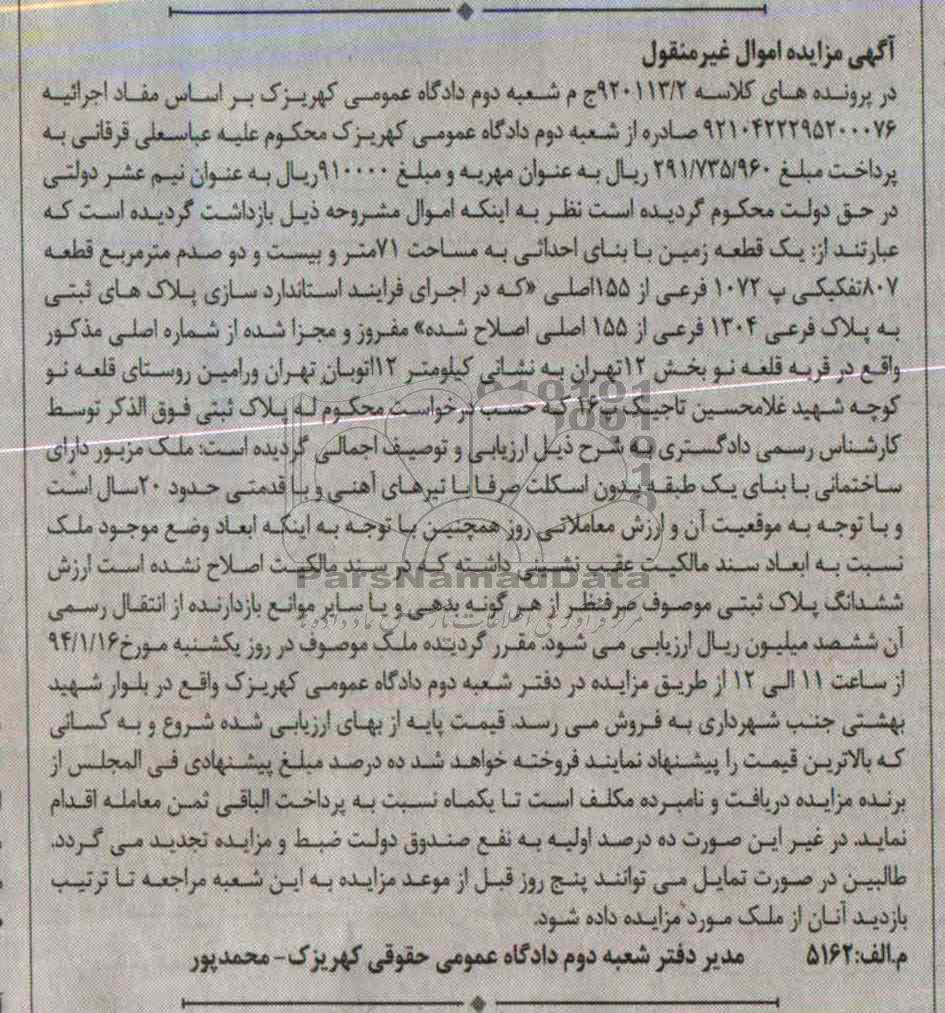 آگهی مزایده اموال غیرمنقول
در پرونده های کلاسه ۹۲۰۱۱۳/۲ج م شعبه دوم دادگاه عمومی کهریزک بر اساس مفاد اجرائیه
۹۲۱۰۴۲۲۲۹۵۲۰۰۰۷۶ صادره از شعبه دوم دادگاه عمومی کهریزک محکوم علیه عباسعلی قرقانی به
پرداخت مبلغ ۲۹۱/۷۳۵/۹۶۰ ریال به عنوان مهریه و مبلغ ۹۱۰۰۰۰ریال به عنوان نیم عشر دولتی
در حق دولت محکوم گردیده است نظر به اینکه اموال مشروحه ذیل بازداشت گردیده است که
عبارتند از: یک قطعه زمین با بنای احداثی به مساحت ۷۱متر و بیست و دو صدم مترمربع قطعه
۸۰۷تفکیکی پ ۱۰۷۲ فرعی از ۱۵۵اصلی «که در اجرای فرایند استاندارد سازی پلاک های ثبتی
به پلاک فرعی ۱۳۰۴ فرعی از ۱۵۵ اصلی اصلاح شده» مفروز و مجزا شده از شماره اصلی مذکور
واقع در قریه قلعه نو بخش ۱۲تهران به نشانی کیلومتر ۱۲اتوبان تهران ورامین روستای قلعه نو
کوچه شهید غلامحسین تاجیک پ۱۶ که حسب درخواست محکوم له پلاک ثبتی فوق الذکر توسط
کارشناس رسمی دادگستری به شرح ذیل ارزیابی و توصیف اجمالی گردیده است: ملک مزبور دارای
ساختمانی با بنای یک طبقه بدون اسکلت صرفا با تیرهای آهنی و با قدمتی حدود ۲۰سال است
و با توجه به موقعیت آن و ارزش معاملاتی روز همچنین با توجه به اینکه ابعاد وضع موجود ملک
نسبت به ابعاد سند مالکیت عقب نشینی داشته که در سند مالکیت اصلاح نشده است ارزش
ششدانگ پلاک ثبتی موصوف صرفنظر از هر گونه بدهی و یا سایر موانع بازدارنده از انتقال رسمی
آن ششصد میلیون ریال ارزیابی می شود. مقرر گردیده ملک موصوف در روز یکشنبه مورخ۹۴/۱/۱۶
از ساعت ۱۱ الی ۱۲ از طریق مزایده در دفتر شعبه دوم دادگاه عمومی کهریزک واقع در بلوار شهید
بهشتی جنب شهرداری به فروش می رسد. قیمت پایه از بهای ارزیابی شده شروع و به کسانی
که بالاترین قیمت را پیشنهاد نمایند فروخته خواهد شد ده درصد مبلغ پیشنهادی فی المجلس از
برنده مزایده دریافت و نامبرده مکلف است تا یکماه نسبت به پرداخت الباقی ثمن معامله اقدام
نماید. در غیر این صورت ده درصد اولیه به نفع صندوق دولت ضبط و مزایده تجدید می گردد.
طالبین در صورت تمایل می توانند پنج روز قبل از موعد مزایده به این شعبه مراجعه تا ترتیب
بازدید آنان از ملک مورد مزایده داده شود.
م.الف:۵۱۶۲ مدیر دفتر شعبه دوم دادگاه عمومی حقوقی کهریزک- محمدپور
ParsNamadData